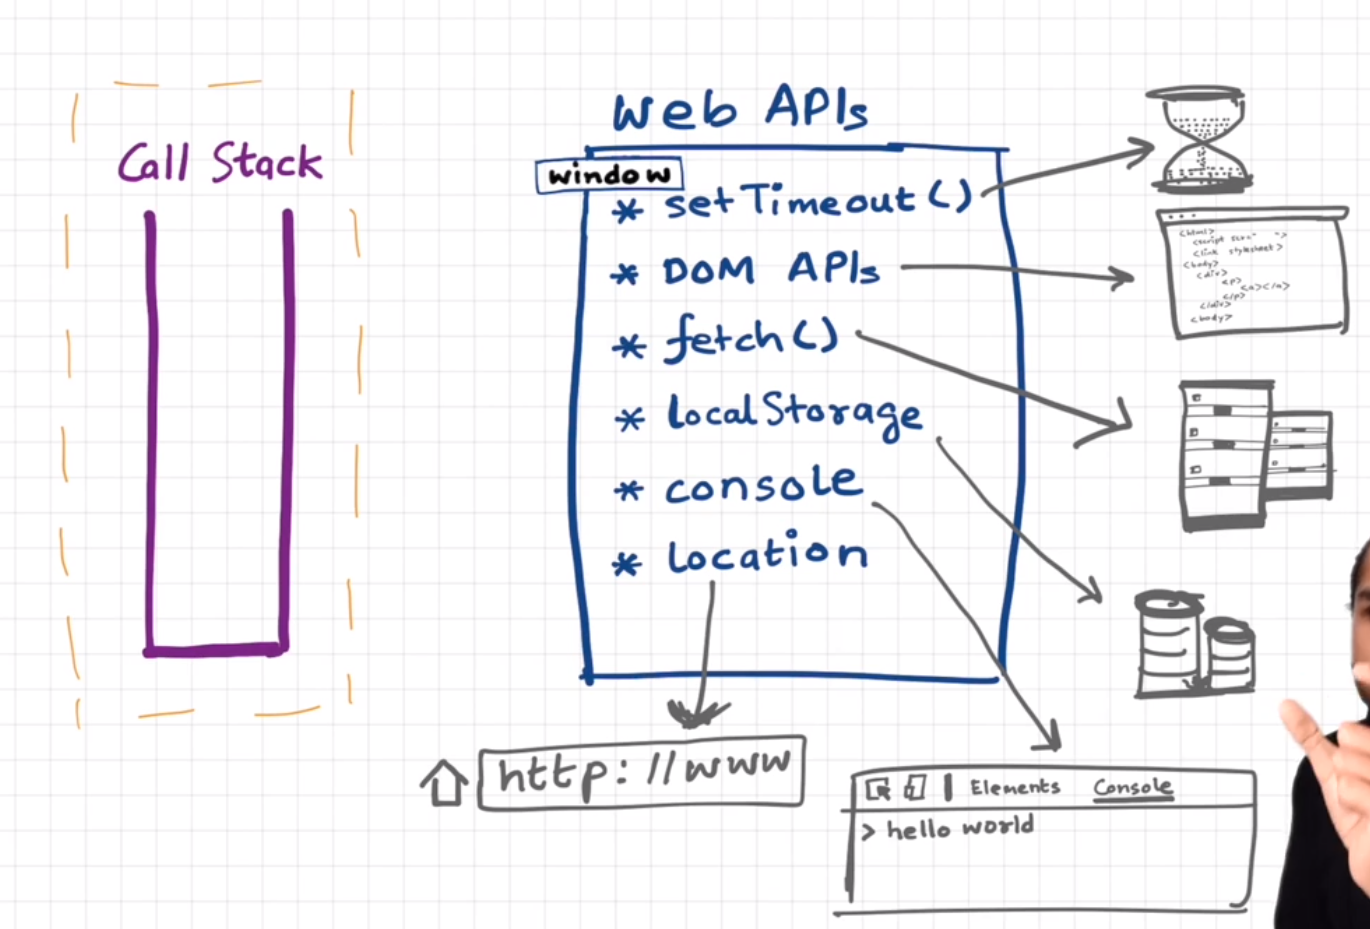 Call Stack
Web APIs
window
* setTimeout()
* DOM APIs
* fetch()
* localStorage
* console
* location
http://www
<html>
<link stylesheet>
<body>
<div>
<p>
<a></a>
</p>
</div>
<body>
Elements Console
> hello world